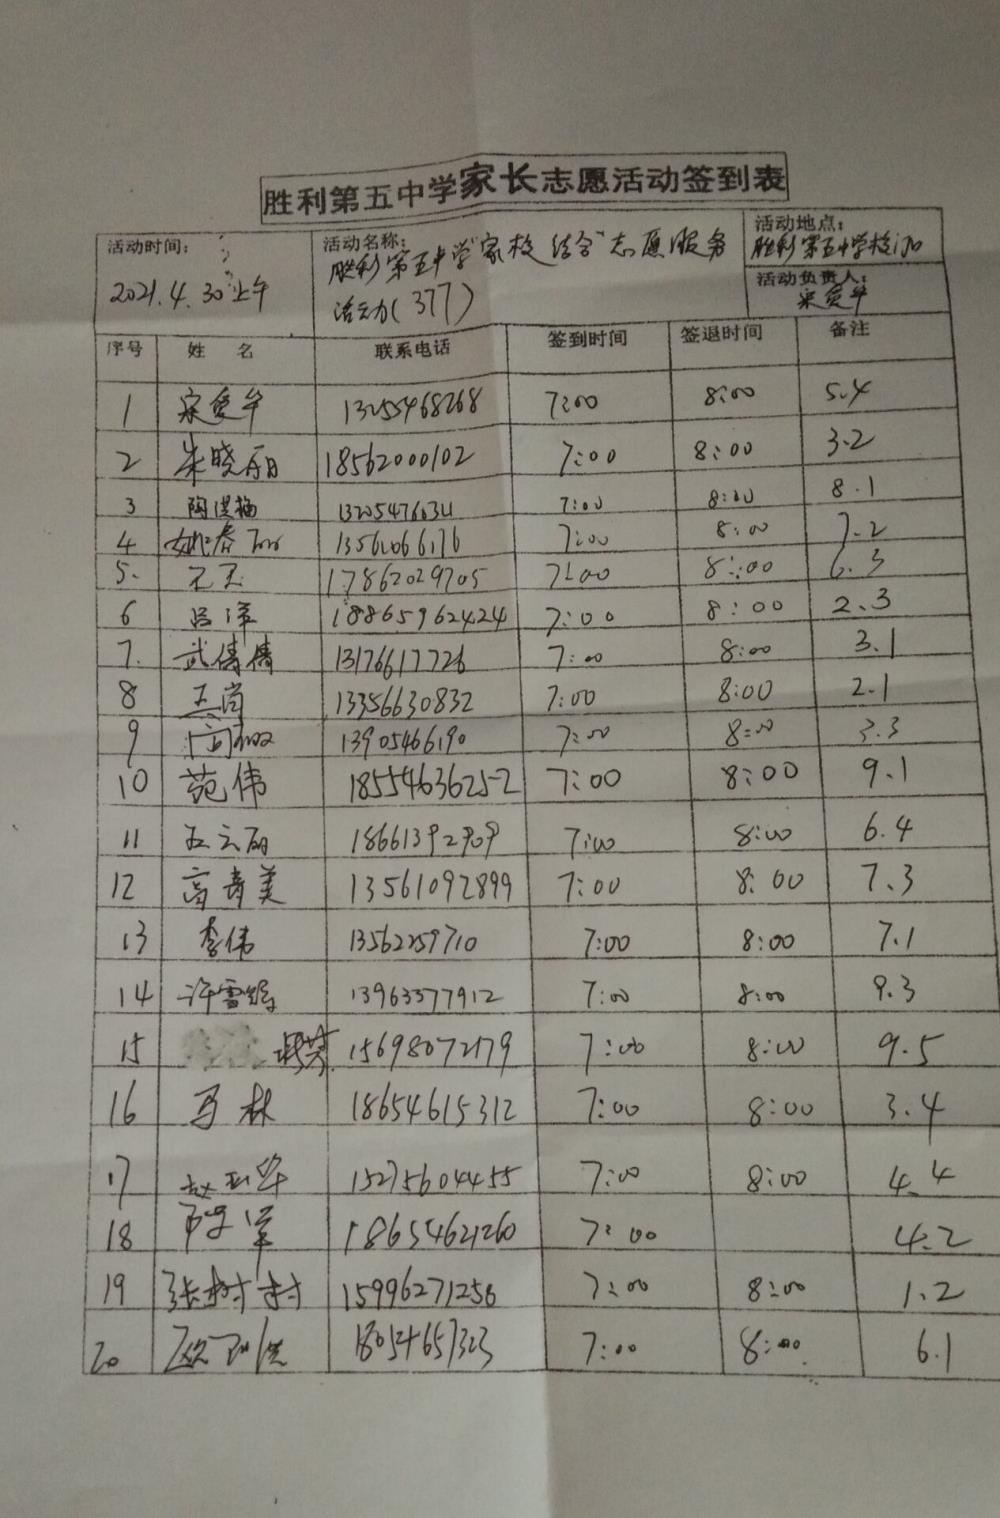 胜利第五中学家长志愿活动签到表
活动时间：
2021.4.30上午
活动名称：
胜利第五中学"家校结合"志愿服务
活动(377)
活动地点：
胜利第五中学校门口
活动负责人：
宋爱华
序号 姓 名 联系电话 签到时间 签退时间 备注
1 宋爱华 13255468268 7:00 8:00 5.4
2 朱晓丽 18562000102 7:00 8:00 3.2
3 13205476031 7:00 8:00 8.1
4 姚春 13561066176 7:00 8:00 7.2
5. 17862029705 7:00 8:00 6.3
6 吕洋 18865962424 7:00 8:00 2.3
7. 武倩倩 13176617726 7:00 8:00 3.1
8 王尚 13356630832 7:00 8:00 2.1
9 13905466190 7:00 8:00 3.3
10 范伟 18554636252 7:00 8:00 9.1
11 王云丽 18661392909 7:00 8:00 6.4
12 高青美 13561092899 7:00 8:00 7.3
13 李伟 13562259710 7:00 8:00 7.1
14 许雪娟 13963377912 7:00 8:00 9.3
15 15698072179 7:00 8:00 9.5
16 马林 18654615312 7:00 8:00 3.4
17 赵玉华 15275604455 7:00 8:00 4.4
18 军 18654621260 7:00 4.2
19 张树村 15996271256 7:00 8:00 1.2
20 欧 18054657323 7:00 8:00 6.1